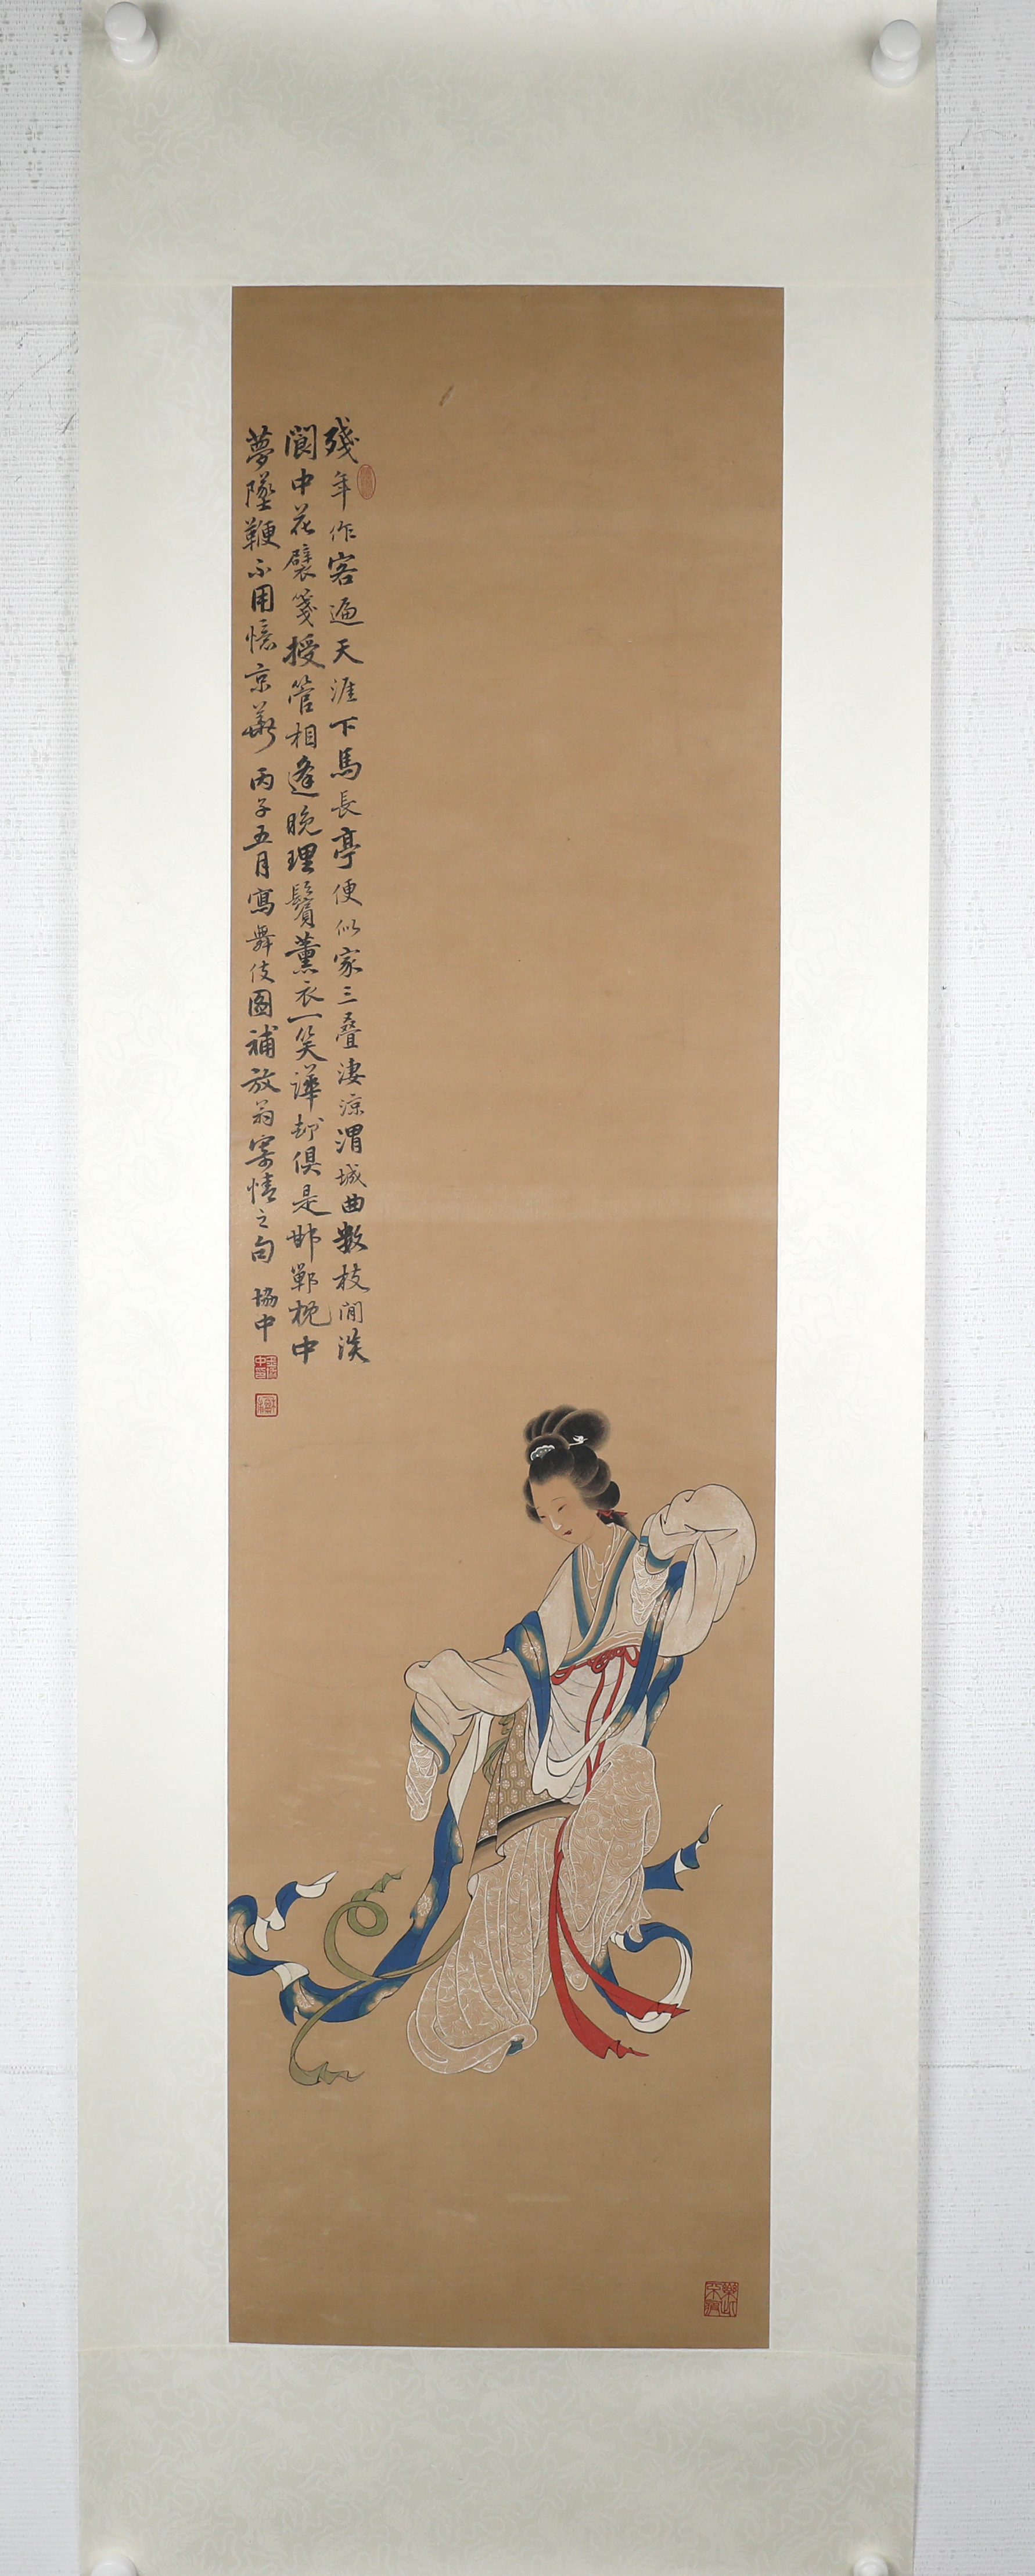 殘年作客遍天涯下馬長亭便似家三疊淒涼渭城曲數枝閒淡
閬中花襞箋授管相逢晚理鬢薰衣一笑譁却俱是邯鄲枕中
夢墜鞭不用憶京華 丙子五月寫舞伎圖補放翁寄情之句 協中